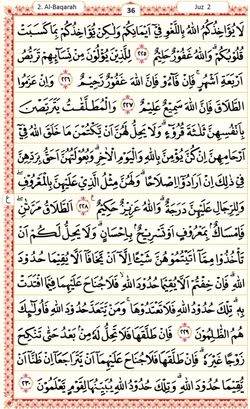 2. Al-Baqarah 36 Juz 2
لَا يُؤَاخِذُكُمُ اللّٰهُ بِاللَّغْوِ فِيْٓ اَيْمَانِكُمْ وَلٰكِنْ يُّؤَاخِذُكُمْ بِمَا كَسَبَتْ
قُلُوْبُكُمْ ۗ وَاللّٰهُ غَفُوْرٌ حَلِيْمٌ ٢٢٥ لِلَّذِيْنَ يُؤْلُوْنَ مِنْ نِّسَاۤىِٕهِمْ تَرَبُّصُ
اَرْبَعَةِ اَشْهُرٍۚ فَاِنْ فَاۤءُوْ فَاِنَّ اللّٰهَ غَفُوْرٌ رَّحِيْمٌ ٢٢٦ وَاِنْ عَزَمُوا
الطَّلَاقَ فَاِنَّ اللّٰهَ سَمِيْعٌ عَلِيْمٌ ٢٢٧ وَالْمُطَلَّقٰتُ يَتَرَبَّصْنَ
بِاَنْفُسِهِنَّ ثَلٰثَةَ قُرُوْۤءٍۗ وَلَا يَحِلُّ لَهُنَّ اَنْ يَّكْتُمْنَ مَا خَلَقَ اللّٰهُ فِيْٓ
اَرْحَامِهِنَّ اِنْ كُنَّ يُؤْمِنَّ بِاللّٰهِ وَالْيَوْمِ الْاٰخِرِۗ وَبُعُوْلَتُهُنَّ اَحَقُّ بِرَدِّهِنَّ
فِيْ ذٰلِكَ اِنْ اَرَادُوْٓا اِصْلَاحًا ۗ وَلَهُنَّ مِثْلُ الَّذِيْ عَلَيْهِنَّ بِالْمَعْرُوْفِۖ
وَلِلرِّجَالِ عَلَيْهِنَّ دَرَجَةٌ ۗ وَاللّٰهُ عَزِيْزٌ حَكِيْمٌ ٢٢٨ اَلطَّلَاقُ مَرَّتٰنِ ۖ
فَاِمْسَاكٌۢ بِمَعْرُوْفٍ اَوْ تَسْرِيْحٌۢ بِاِحْسَانٍ ۗ وَلَا يَحِلُّ لَكُمْ اَنْ
تَأْخُذُوْا مِمَّآ اٰتَيْتُمُوْهُنَّ شَيْـًٔا اِلَّآ اَنْ يَّخَافَآ اَلَّا يُقِيْمَا حُدُوْدَ
اللّٰهِ ۗ فَاِنْ خِفْتُمْ اَلَّا يُقِيْمَا حُدُوْدَ اللّٰهِ ۙ فَلَا جُنَاحَ عَلَيْهِمَا فِيْمَا افْتَدَتْ
بِهٖ ۗ تِلْكَ حُدُوْدُ اللّٰهِ فَلَا تَعْتَدُوْهَا ۚ وَمَنْ يَّتَعَدَّ حُدُوْدَ اللّٰهِ فَاُولٰۤىِٕكَ
هُمُ الظّٰلِمُوْنَ ٢٢٩ فَاِنْ طَلَّقَهَا فَلَا تَحِلُّ لَهٗ مِنْۢ بَعْدُ حَتّٰى تَنْكِحَ
زَوْجًا غَيْرَهٗ ۗ فَاِنْ طَلَّقَهَا فَلَا جُنَاحَ عَلَيْهِمَآ اَنْ يَّتَرَاجَعَآ اِنْ ظَنَّآ اَنْ
يُّقِيْمَا حُدُوْدَ اللّٰهِ ۗ وَتِلْكَ حُدُوْدُ اللّٰهِ يُبَيِّنُهَا لِقَوْمٍ يَّعْلَمُوْنَ ٢٣٠
ع